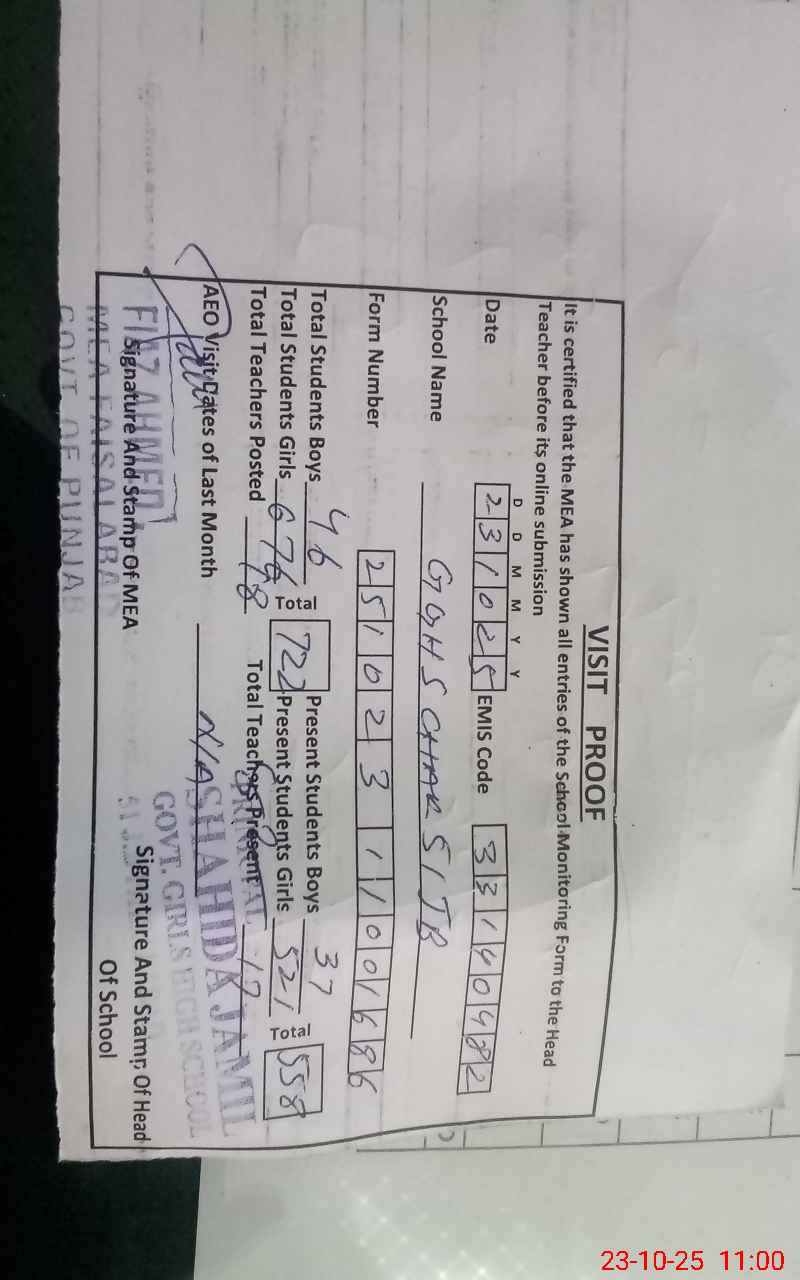 VISIT PROOF
It is certified that the MEA has shown all entries of the School Monitoring Form to the Head
Teacher before its online submission
D D M M Y Y
Date 231025 EMIS Code 33140482
School Name GGHS CHAK 51JB
Form Number 25102311001686
Total Students Boys 46 Present Students Boys 37
Total Students Girls 676 Total 722 Present Students Girls 521 Total 558
Total Teachers Posted 18 Total Teachers Present 17
AEO Visit Dates of Last Month N/A
PRINCIPAL
SHAHIDA JAMIL
GOVT. GIRLS HIGH SCHOOL
FIAZ AHMED
Signature And Stamp Of MEA
MEA FAISALABAD
GOVT OF PUNJAB
Signature And Stamp Of Head
Of School
23-10-25 11:00